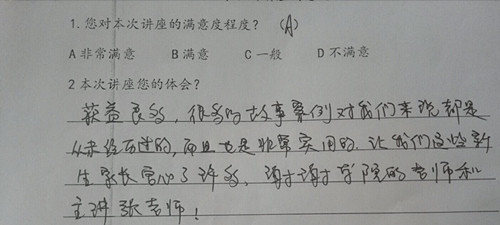 1. 您对本次讲座的满意度程度? (A)
A 非常满意 B 满意 C 一般 D 不满意
2 本次讲座您的体会?
获益良多,很多的故事案例对我们来说都是
从未经历过的,而且也是非常实用的.让我们这些新
生家长宽心了许多.谢谢谢谢学院的老师和
主讲张老师!